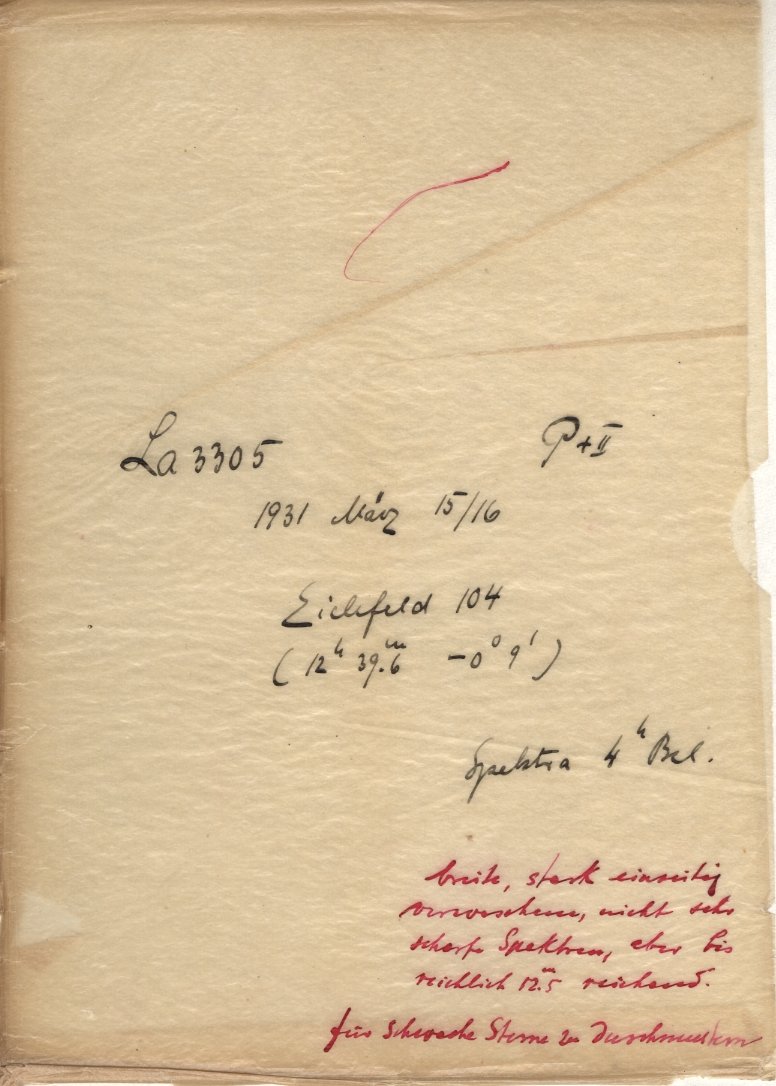 La 3305 P+II
1931 März 15/16
Eichfeld 104
(12ʰ 39.ᵐ6 -0° 9')
Spektra 4ʰ Bel.
breite, stark einseitig
verwaschene, nicht sehr
scharfe Spektren, aber bis
reichlich 12.ᵐ5 reichend.
für schwache Sterne zu durchmustern